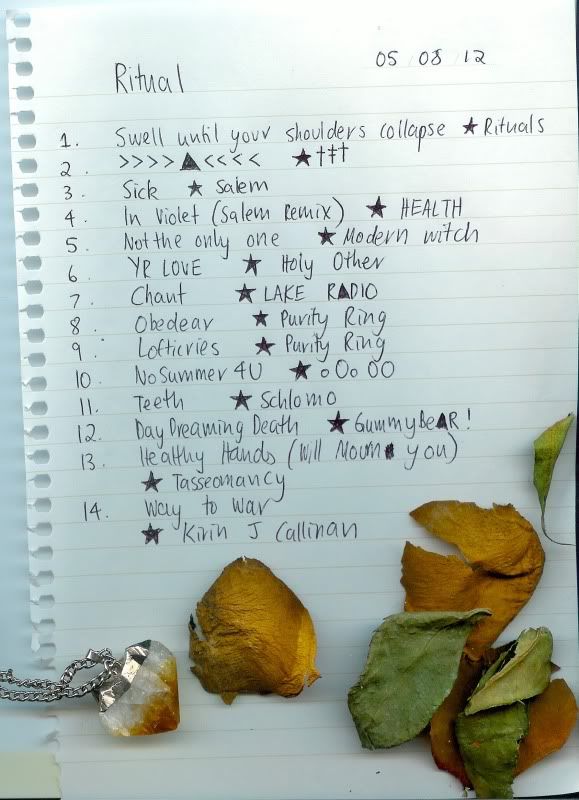 05 08 12
Ritual
1. Swell until your shoulders collapse ★ Rituals
2. >>>>▲<<<< ★ †‡†
3. Sick ★ Salem
4. In Violet (Salem Remix) ★ HEALTH
5. Not the only one ★ Modern witch
6. YR LOVE ★ Holy Other
7. Chant ★ LAKE RADIO
8. Obedear ★ Purity Ring
9. Lofticries ★ Purity Ring
10. No Summer 4U ★ oOo OO
11. Teeth ★ Schlomo
12. Day Dreaming Death ★ GummyBeAR!
13. Healthy Hands (Will Mourn you)
★ Tasseomancy
14. Way to War
★ Kirin J Callinan